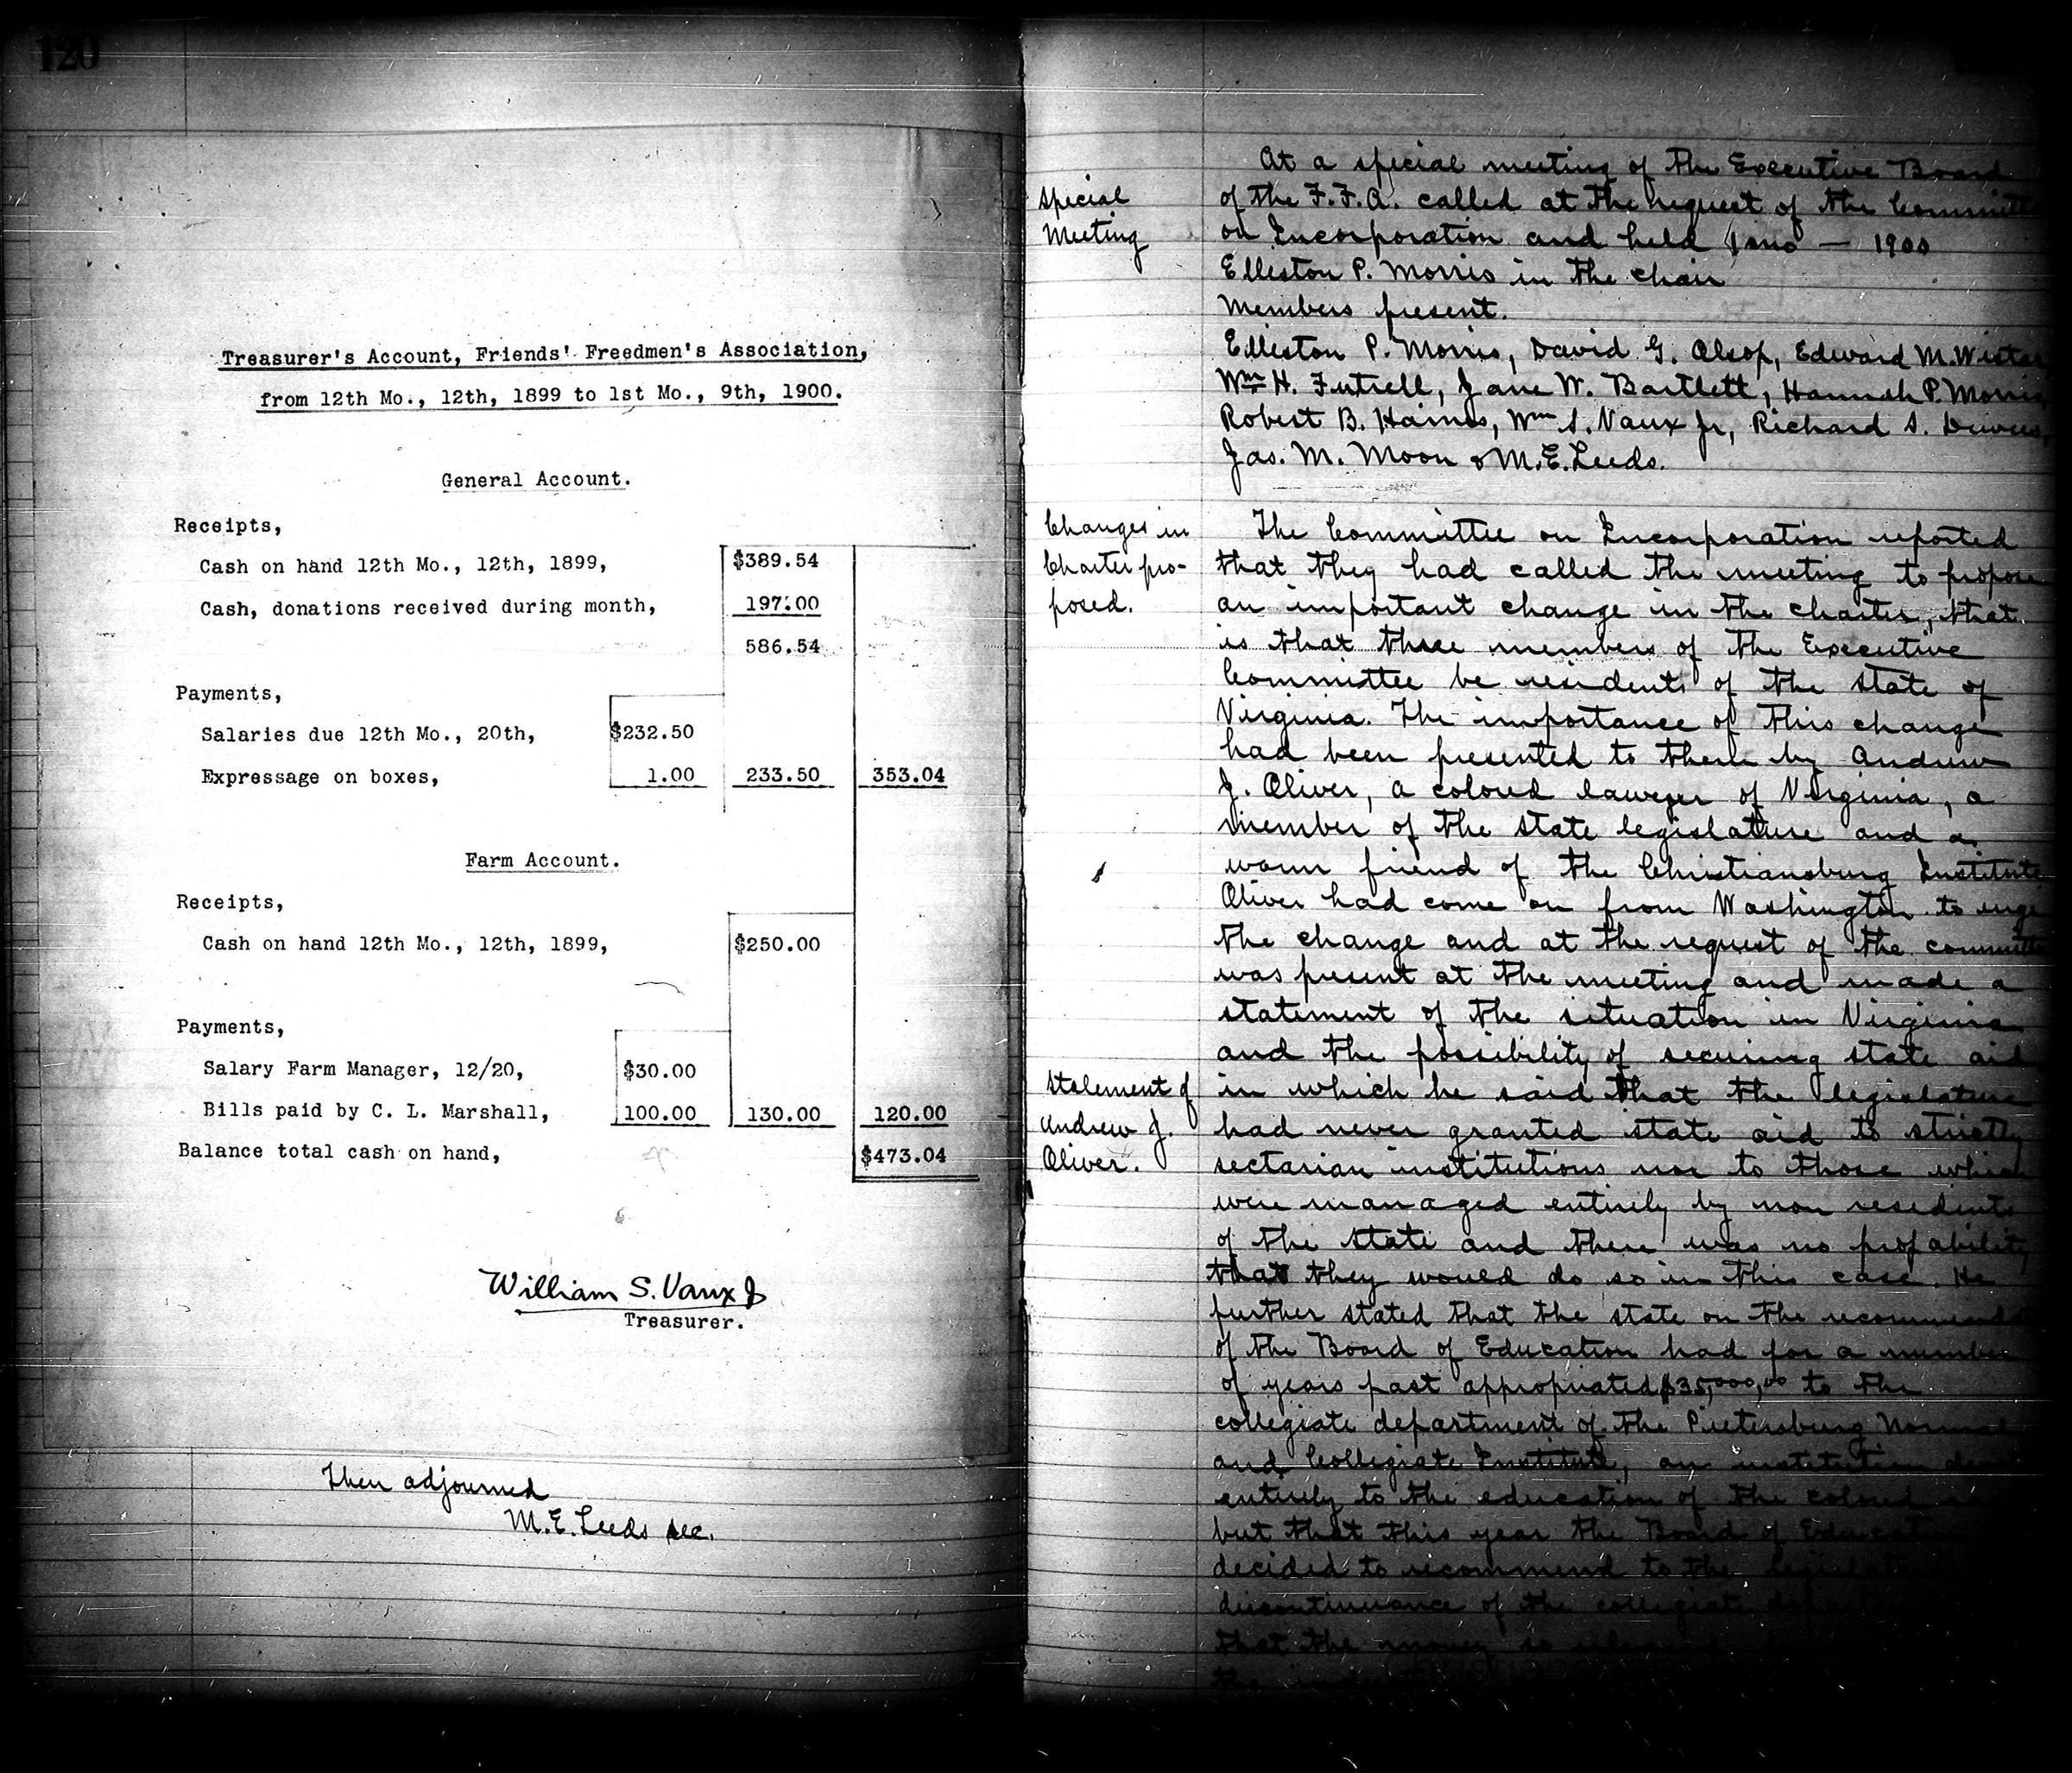 120
Treasurer's Account, Friends' Freedmen's Association,
from 12th Mo., 12th, 1899 to 1st Mo., 9th, 1900.
General Account.
Receipts,
Cash on hand 12th Mo., 12th, 1899, $389.54
Cash, donations received during month, 197.00
586.54
Payments,
Salaries due 12th Mo., 20th, $232.50
Expressage on boxes, 1.00 233.50 353.04
Farm Account.
Receipts,
Cash on hand 12th Mo., 12th, 1899, $250.00
Payments,
Salary Farm Manager, 12/20, $30.00
Bills paid by C. L. Marshall, 100.00 130.00 120.00
Balance total cash on hand, $473.04
William S. Vaux Jr
Treasurer.
Then adjourned
M. E. Leeds Sec.
Special
Meeting
At a special meeting of the Executive Board
of the F. F. A. called at the request of the Committee
on Incorporation and held 1 mo — 1900
Elliston P. Morris in the chair
Members present.
Elliston P. Morris, David G. Alsop, Edward M. Wistar
Wm H. Futrell, Jane W. Bartlett, Hannah P. Morris,
Robert B. Haines, Wm S. Vaux Jr, Richard S. Dewees,
Jas. M. Moon & M. E. Leeds.
Changes in
Charter pro-
posed.
The Committee on Incorporation reported
that they had called the meeting to propose
an important change in the charter, that
is that three members of the Executive
Committee be residents of the state of
Virginia. The importance of this change
had been presented to them by Andrew
J. Oliver, a colored lawyer of Virginia, a
member of the state legislature and a
warm friend of the Christiansburg Institute
Oliver had come on from Washington to urge
the change and at the request of the committee
was present at the meeting and made a
statement of the situation in Virginia
and the possibility of securing state aid
Statement of
Andrew J.
Oliver.
in which he said that the legislature
had never granted state aid to strictly
sectarian institutions nor to those which
were managed entirely by non residents
of the state and there was no probability
that they would do so in this case. He
further stated that the state on the
of the Board of Education had for a number
of years past appropriated $35,000,00 to the
collegiate department of the Pietersburg Normal
and Collegiate Institute, an institution
entirely to the education of the colored
but that this year the Board of
decided to recommend to the
discontinuance of the collegiate
that the money so
the